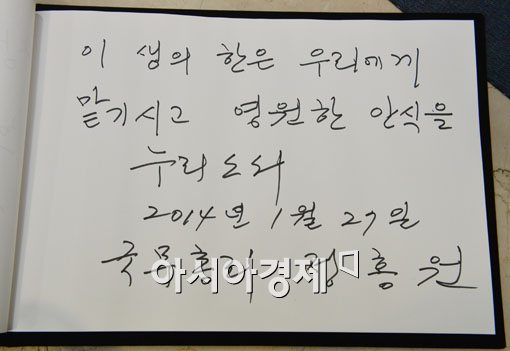 이 생의 한은 우리에게
맡기시고 영원한 안식을
누리소서
2014년 1월 27일
국무총리 정홍원
아시아경제